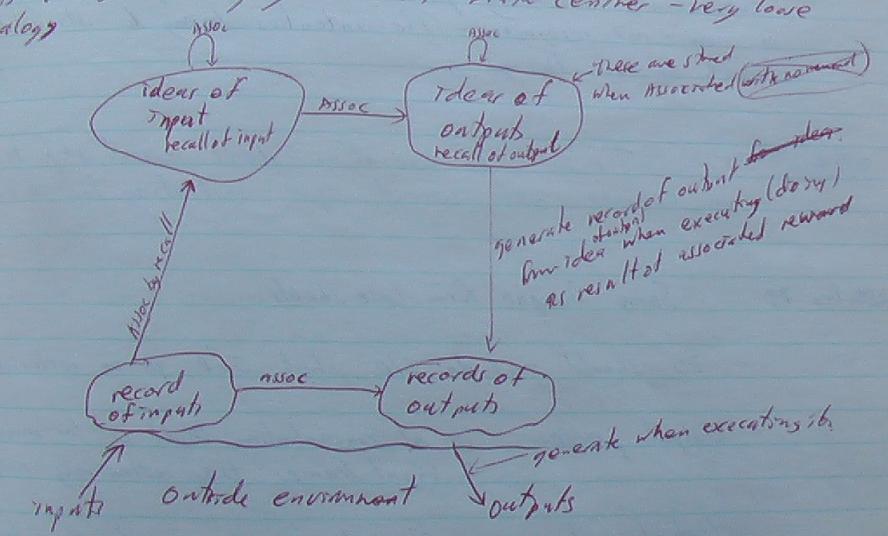 - very lowe
alogy
Assoc
Assoc
ideas of
input
recall of input
Assoc
Ideas of
outputs
recall of output
These are stored
when Associated with no reward
Assoc by recall
generate record of output for idea
from idea of output when executing (doing)
as result of associated reward
record
of inputs
Assoc
records of
outputs
generate when executing it.
inputs
outside enviroment
outputs